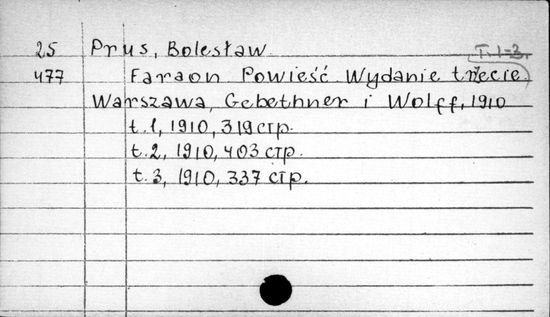 25 Prus, Bolesław T. 1-3.
477 Faraon Powieść Wydanie trzecie
Warszawa, Gebethner i Wolff, 1910
t. 1, 1910, 319 стр.
t. 2, 1910, 403 стр.
t. 3, 1910, 337 стр.